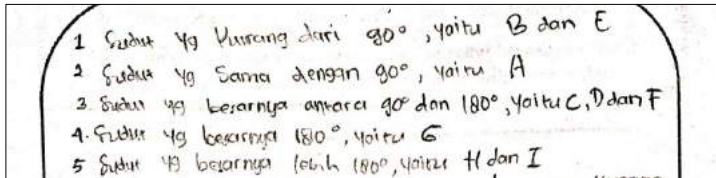 1 Sudut yg Kurang dari 90°, yaitu B dan E
2 Sudut yg Sama dengan 90°, yaitu A
3. Sudut yg besarnya antara 90° dan 180°, yaitu C, D dan F
4. Sudut yg besarnya 180°, yaitu G
5 Sudut yg besarnya lebih 180°, yaitu H dan I